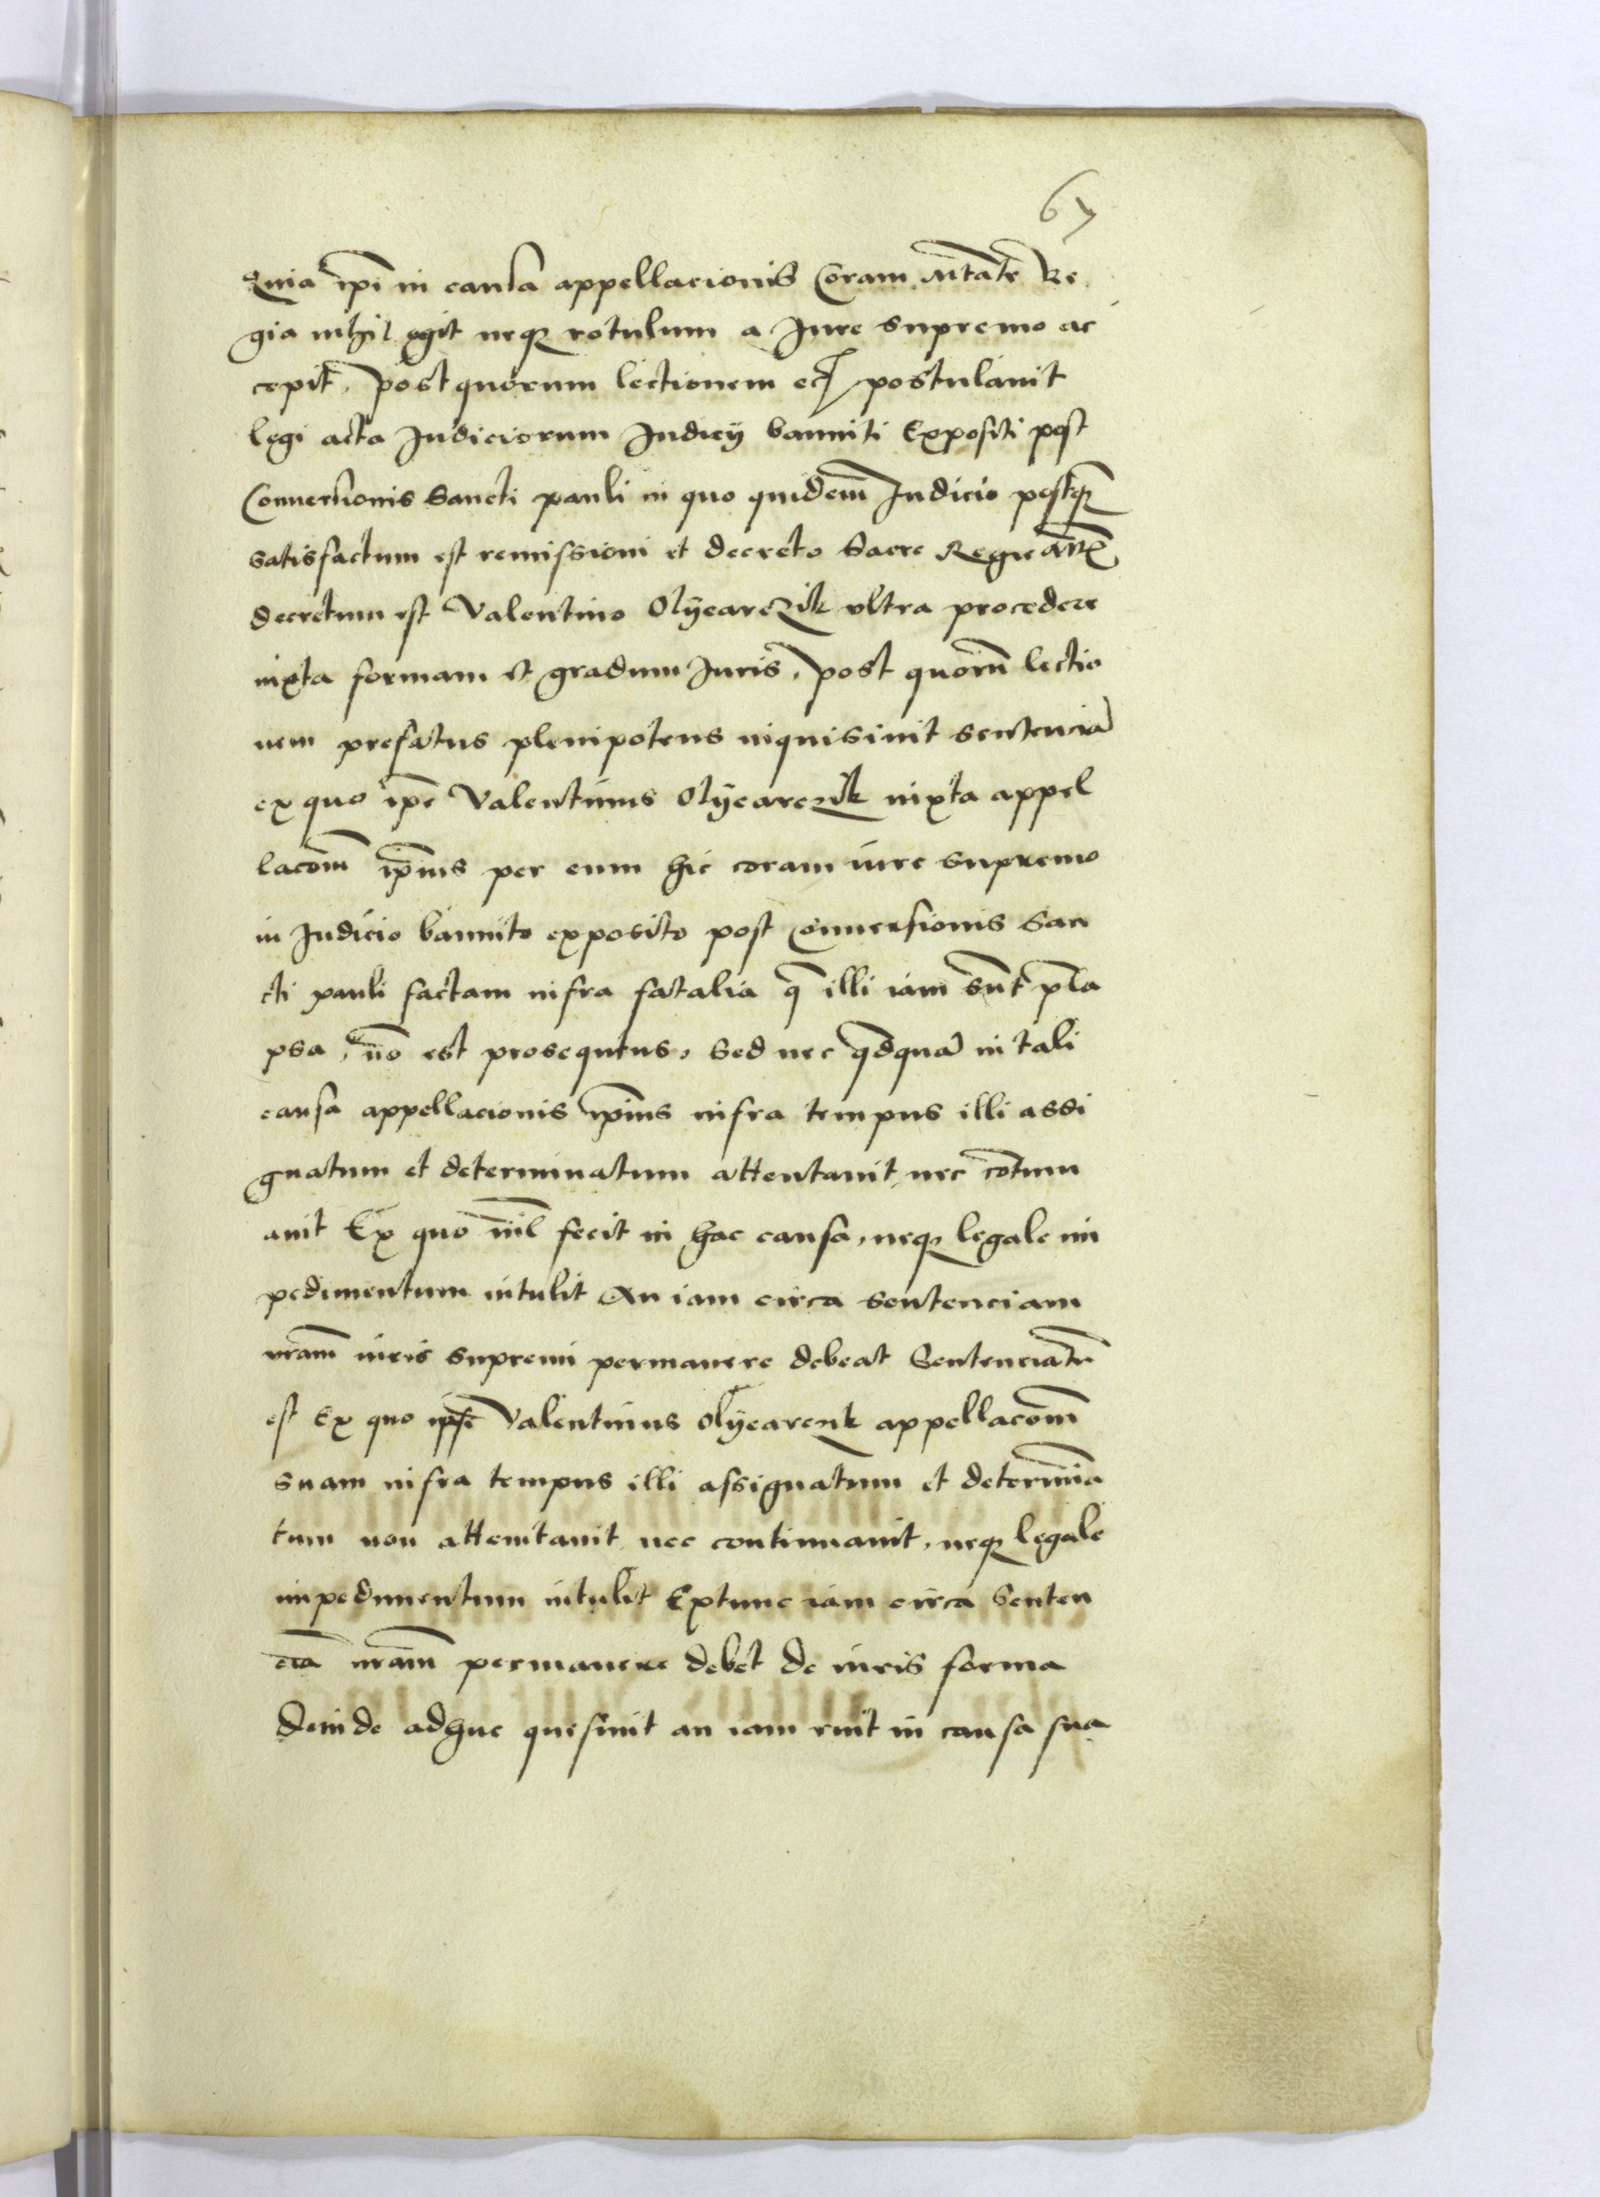 67
Quia ipē in causa appellacionis Coram Mtate Re
gia nihil egit neqȝ rotulum a Jure supremo ac
cepit. Post quorum lectionem ecȝ postulauit
legi acta Judiciorum Judicÿ banniti Expositi post
Conuersionis Sancti pauli in quo quidem Judicio postqȝ
satisfactum est remissioni et decreto Sacre Regie
decretum est Valentino Olÿearczik vltra procedere
iuxta formam et gradum Juris. Post quorū lectio
nem prefatus plenipotens inquisiuit sentenciā
ex quo ipē Valentinus Olÿearczik iuxta appel
lacōm ipīus per eum hic coram iure supremo
in Judicio bannito exposito post Conuersionis San
cti pauli factam infra fatalia q̄ illi iam sūnt p̄la
psa, nō est prosequtus, Sed nec qdquā in tali
causa appellacionis ipīus infra tempus illi assi
gnatum et determinatum attentauit nec cōtinu
auit Ex quo niīl fecit in hac causa, neqȝ legale im
pedimentum intulit An iam circa sentenciam
nrām iuris supremi permanere debeat Sentenciatū
est Ex quo ipse Valentinus Olÿearczik appellacōm
suam infra tempus illi assignatum et determīa
tum non attentauit nec continuauit, neqȝ legale
impedimentum intulit Extunc iam circa Senten
ciā nrām permanere debet de iuris forma
Deinde adhuc quesiuit an iam ruit in causa sua